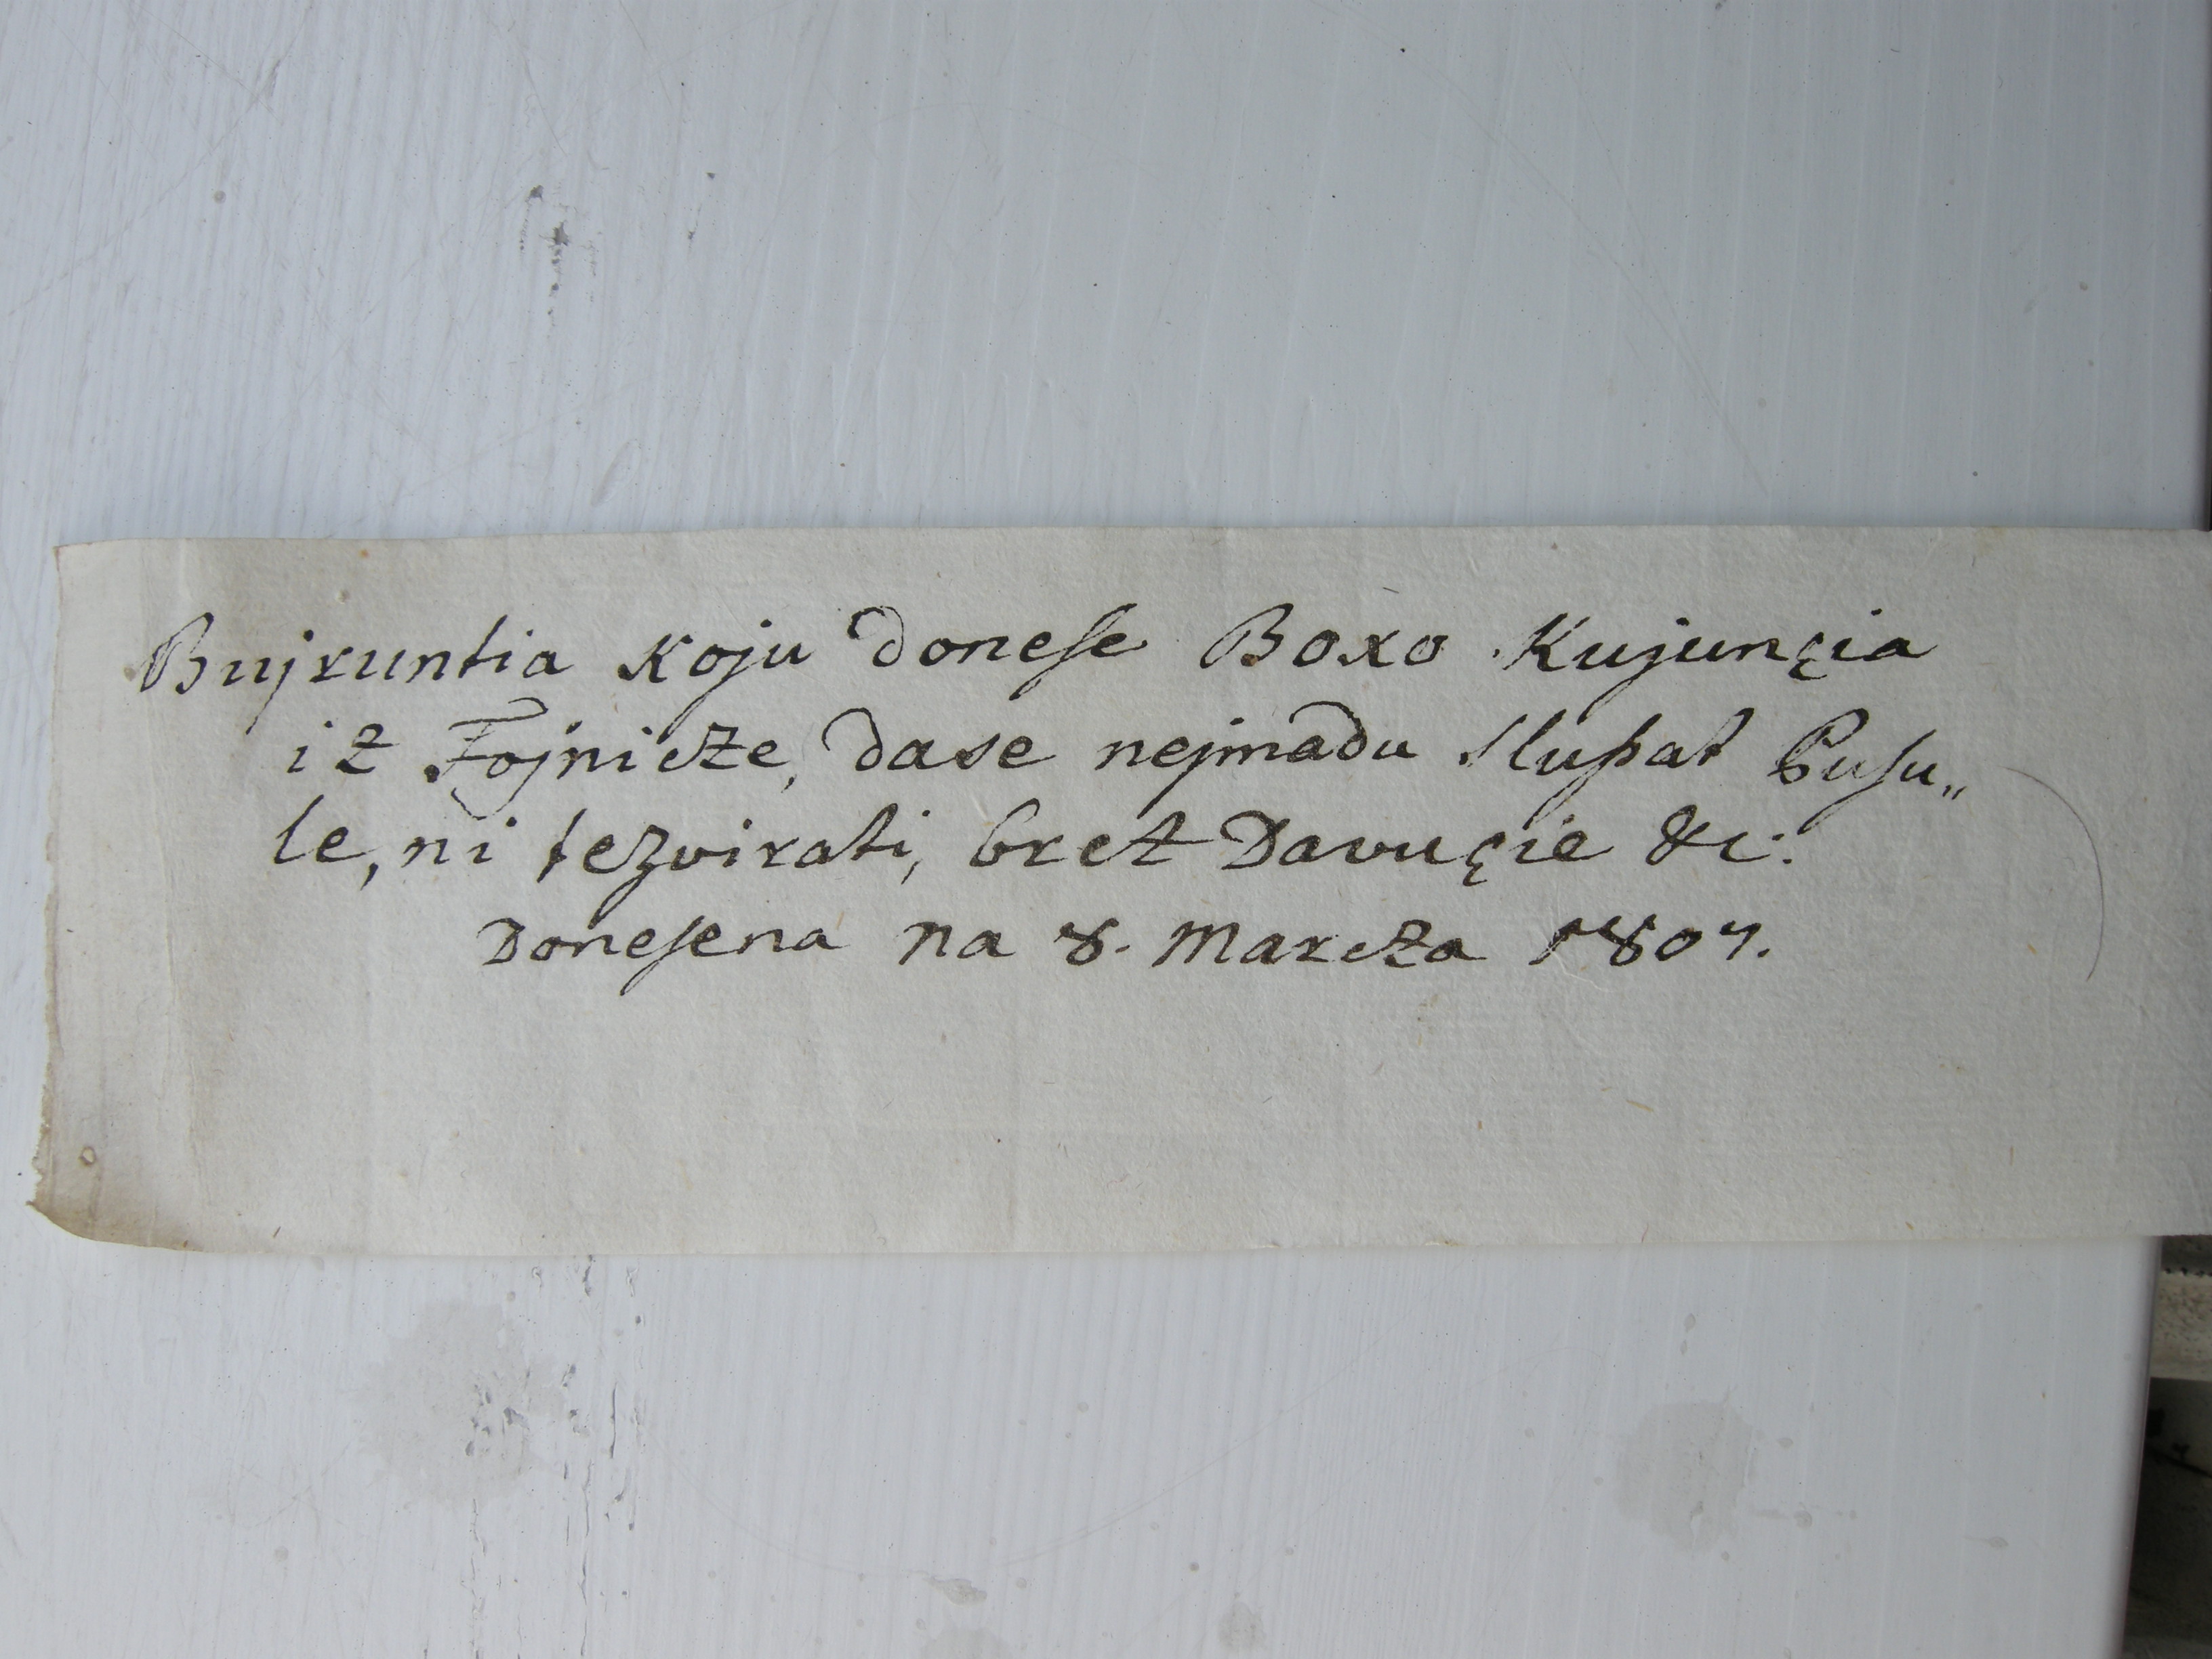 Bujruntia koju donese Boxo Kujunçia
iz Fojnicze, dase nejmadu slushat Pusu„
le, ni tezvirati, brez Davuçie &c:
Donesena na 8. Marcza 1807.